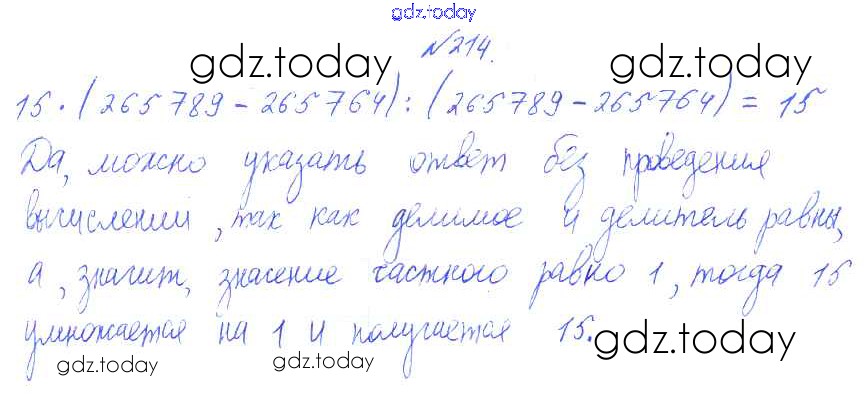 gdz.today
№214.
gdz.today gdz.today
15·(265789-265764):(265789-265764)=15
Да, можно указать ответ без проведения
вычислений, так как делимое и делитель равны,
а, значит, значение частного равно 1, тогда 15
умножается на 1 и получается 15.
gdz.today gdz.today gdz.today